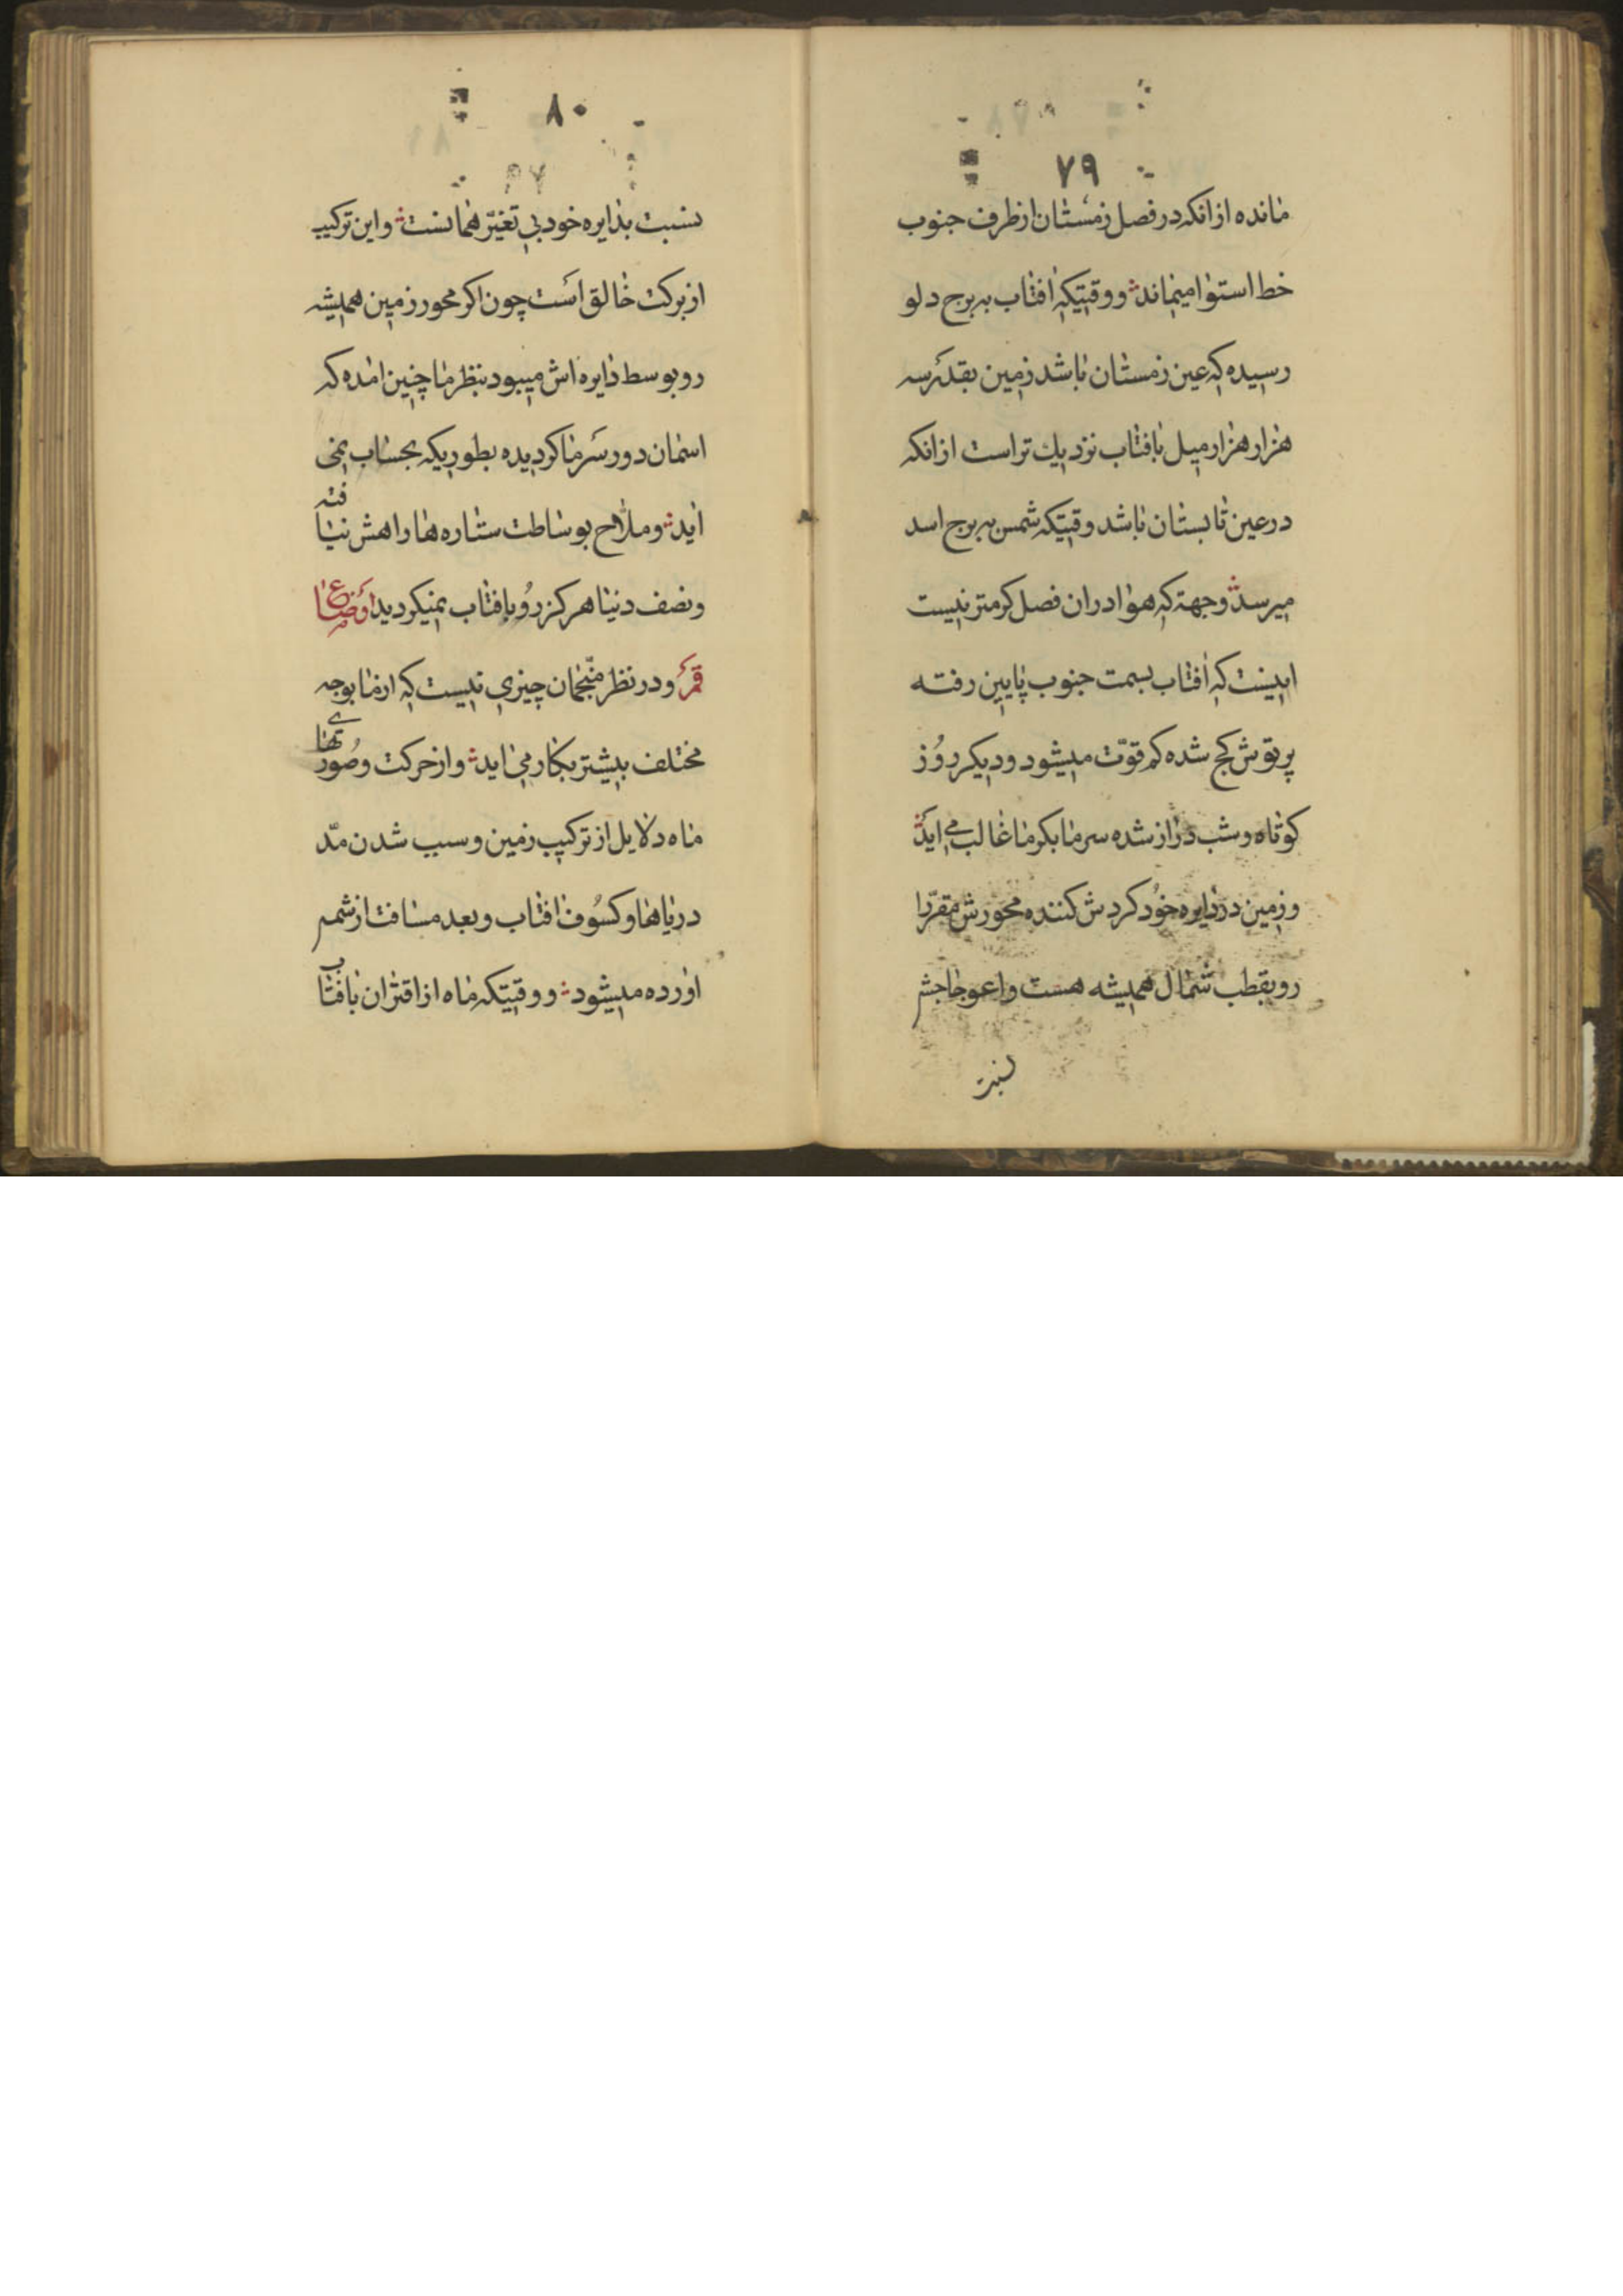 ۷۹
مانده ازانکه در فصل زمستان ازطرف جنوب
خط استوا مینماند؞ و وقتیکه افتاب به برج دلو
رسیده که عین زمستان باشد زمین بقدر سه
هزار هزار میل بافتاب نزدیك تراست ازانکه
در عین تابستان باشد وقتیکه شمس به برج اسد
میرسد؞ وجهة که هوا دران فصل کرمتر نیست
اینست که افتاب بسمت جنوب پایین رفته
پرتوش کج شده کم قوّت میشود و دیکر روز
کوتاه و شب دراز شده سرما بکرما غالب می اید؞
و زمین در دایره خود کردش کننده محورش مقرّرا
رو بقطب شمال همیشه هست و اعوجاجش
نسبت
۸۰
نسبت بدایره خود بی تغیّر همانست؞ و این ترکیب
از برکت خالق است چون اکر محور زمین همیشه
رو بوسط دایره اش میبود بنظر ما چنین امده که
اسمان دور سر ما کردیده بطوریکه بحساب نمی
اید؞ و ملاح بوساطت ستاره ها راهش نیافته
و نصف دنیا هرکز رو بافتاب نمیکردید اوضاع
قمر و در نظر منجّمان چیزی نیست که ازما بوجه
مختلف بیشتر بکار می اید؞ و از حرکت و صورتهای
ماه دلایل از ترکیب زمین و سبب شدن مدّ
دریاها و کسوف افتاب و بعد مسافت از شمس
اورده میشود؞ و وقتیکه ماه از اقتران بافتاب